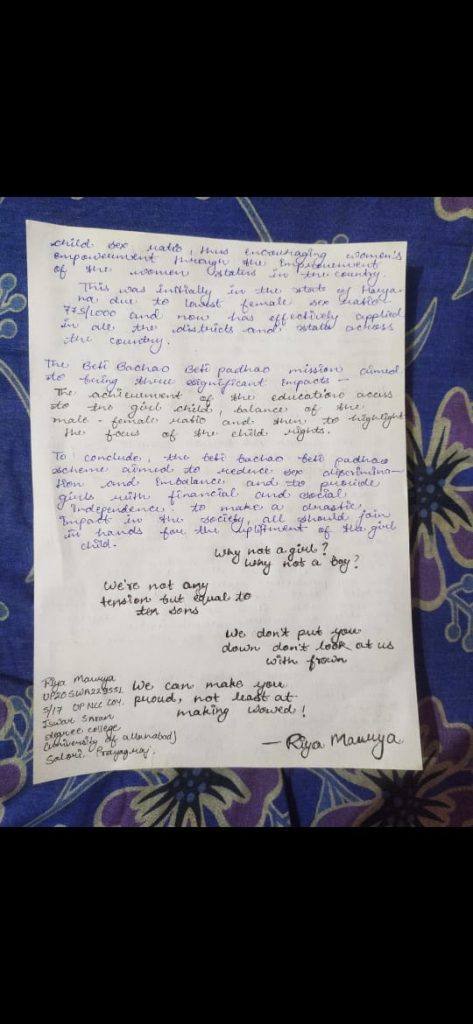 child sex ratio, thus encouraging women's
empowerment through the improvement
of the women status in the country.
This was initially in the state of Harya-
na due to lowest female sex ratio-
775/1000 and now has effectively applied
in all the districts and state across
the country.
The Beti Bachao Beti padhao mission aimed
to bring three significant impacts -
The achievement of the education access
to the girl child, balance of the
male - female ratio and then to highlight
the focus of the child rights.
To conclude, the beti bachao beti padhao
scheme aimed to reduce sex discrimina-
tion and imbalance and to provide
girls with financial and social
independence, to make a drastic
impact in the society, all should join
in hands for the upliftment of the girl
child.
Why not a girl?
Why not a boy?
We're not any
tension but equal to
ten sons
We don't put you
down don't look at us
with frown
We can make you
proud, not least at
making wowed!
Riya Maurya
5/17 UP NCC COY.
Iswar Saran
degree college
(University of allahabad)
Salori Prayagraj.
— Riya Maurya